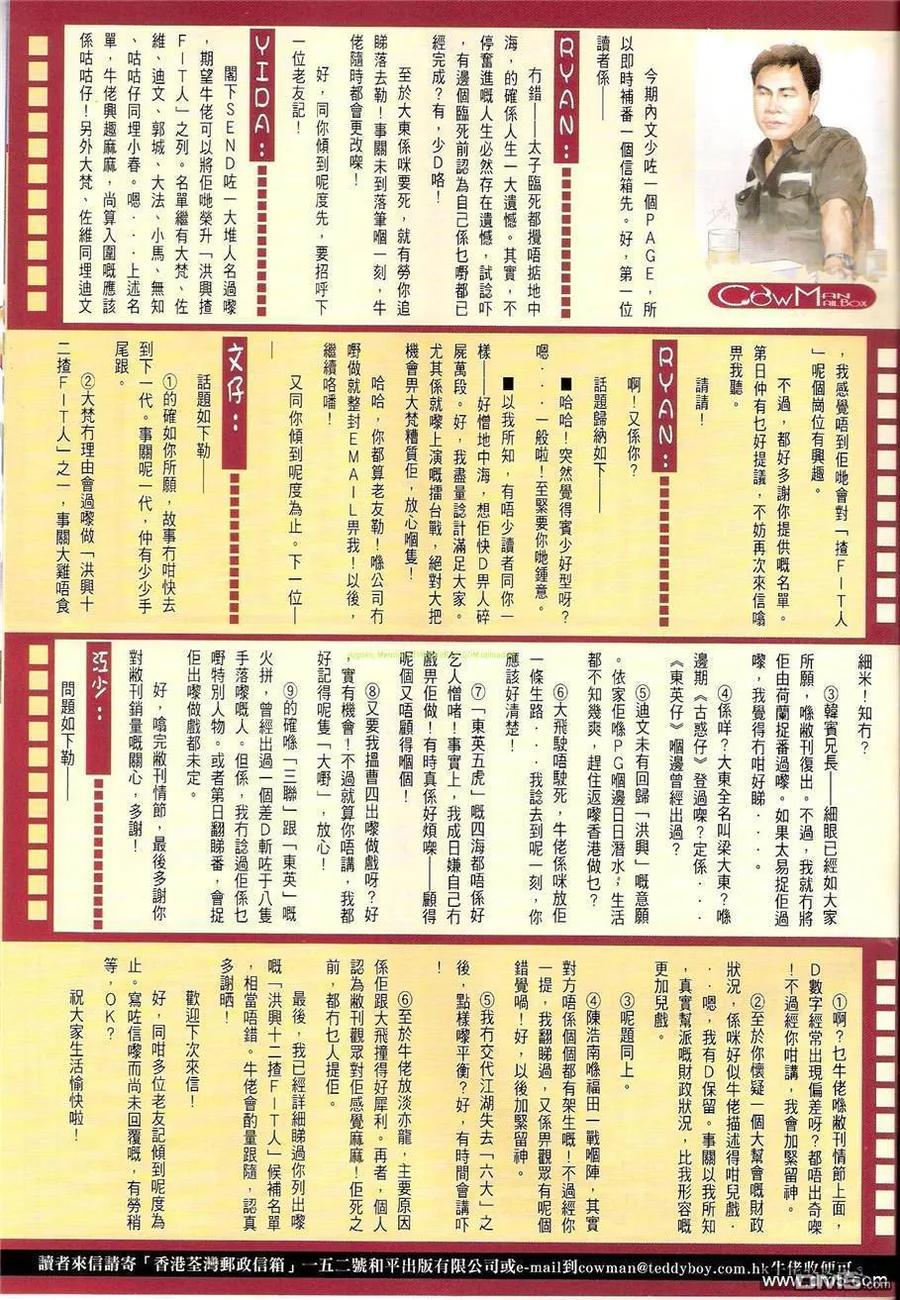 COWMAN MAILBOX
今期內文少咗一個PAGE，所
以即時補番一個信箱先。好，第一位
讀者係——
RYAN：
冇錯——太子臨死都攪唔掂地中
海，的確係人生一大遺憾。其實，不
停奮進嘅人生必然存在遺憾，試諗吓
，有邊個臨死前認為自己係乜嘢都已
經完成？有，少D咯！
至於大東係咪要死，就有勞你追
睇落去勒！事關未到落筆嗰一刻，牛
佬隨時都會更改㗎！
好，同你傾到呢度先，要招呼下
一位老友記！
YIDA：
閣下SEND咗一大堆人名過嚟
，期望牛佬可以將佢哋榮升「洪興揸
FIT人」之列。名單繼有大梵、佐
維、迪文、郭城、大法、小馬、無知
、咕咕仔同埋小春。嗯．．．上述名
單，牛佬興趣麻麻，尚算入圍嘅應該
係咕咕仔！另外大梵、佐維同埋迪文
，我感覺唔到佢哋會對「揸FIT人
」呢個崗位有興趣。
不過，都好多謝你提供嘅名單。
第日仲有乜好提議，不妨再次來信噏
畀我聽。
請請！
RYAN：
啊！又係你？
話題歸納如下——
■哈哈！突然覺得賓少好型呀？
嗯．．．一般啦！至緊要你哋鍾意。
■以我所知，有唔少讀者同你一
樣——好憎地中海，想佢快D畀人碎
屍萬段。好，我盡量諗計滿足大家。
尤其係就嚟上演嘅擂台戰，絕對大把
機會畀大梵糟質佢，放心嗰隻！
哈哈，你都算老友勒！喺公司冇
嘢做就整封EMAIL畀我！以後，
繼續咯噃！
又同你傾到呢度為止。下一位—
—
文仔：
話題如下勒——
①的確如你所願，故事冇咁快去
到下一代。事關呢一代，仲有少少手
尾跟。
②大梵冇理由會過嚟做「洪興十
二揸FIT人」之一，事關大雞唔食
細米！知冇？
③韓賓兄長——細眼已經如大家
所願，喺敝刊復出。不過，我就冇將
佢由荷蘭捉番過嚟。如果太易捉佢過
嚟，我覺得冇咁好睇．．．。
④係咩？大東全名叫梁大東？喺
邊期《古惑仔》登過㗎？定係．．．
《東英仔》嗰邊曾經出過？
⑤迪文未有回歸「洪興」嘅意願
。依家佢喺PG嗰邊日日潛水，生活
都不知幾爽，趕住返嚟香港做乜？
⑥大飛駛唔駛死，牛佬係咪放佢
一條生路．．．我諗去到呢一刻，你
應該好清楚！
⑦「東英五虎」嘅四海都唔係好
乞人憎啫！事實上，我成日嫌自己冇
戲畀佢做！有時真係好煩㗎——顧得
呢個又唔顧得嗰個！
⑧又要我搵曹四出嚟做戲呀？好
，實有機會！不過就算你唔講，我都
好記得呢隻「大嘢」，放心！
⑨的確喺「三聯」跟「東英」嘅
火拼，曾經出過一個差D斬咗于八隻
手落嚟嘅人。但係，我冇諗過佢係乜
嘢特別人物。或者第日翻睇番，會捉
佢出嚟做戲都未定。
好，噏完敝刊情節，最後多謝你
對敝刊銷量嘅關心，多謝！
江少：
問題如下勒——
①啊？乜牛佬喺敝刊情節上面，
D數字經常出現偏差呀？都唔出奇㗎
！不過經你咁講，我會加緊留神。
②至於你懷疑一個大幫會嘅財政
狀況，係咪好似牛佬描述得咁兒戲．
．．嗯，我有D保留。事關以我所知
，真實幫派嘅財政狀況，比我形容嘅
更加兒戲。
③呢題同上。
④陳浩南喺福田一戰嗰陣，其實
對方唔係個個都有架生嘅！不過經你
一提，我翻睇過，又係畀觀眾有呢個
錯覺喎！好，以後加緊留神。
⑤我冇交代江湖失去「六大」之
後，點樣嚟平衡？好，有時間會講吓
！
⑥至於牛佬放淡亦龍，主要原因
係佢跟大飛撞得好犀利。再者，個人
認為敝刊觀眾對佢感覺麻麻！佢死之
前，都冇乜人提佢。
最後，我已經詳細睇過你列出嚟
嘅「洪興十二揸FIT人」候補名單
，相當唔錯。牛佬會酌量跟隨，認真
多謝晒！
歡迎下次來信！
好，同咁多位老友記傾到呢度為
止。寫咗信嚟而尚未回覆嘅，有勞稍
等，OK？
祝大家生活愉快啦！
讀者來信請寄「香港荃灣郵政信箱」一五二號和平出版有限公司或e-mail到cowman@teddyboy.com.hk牛佬收便可